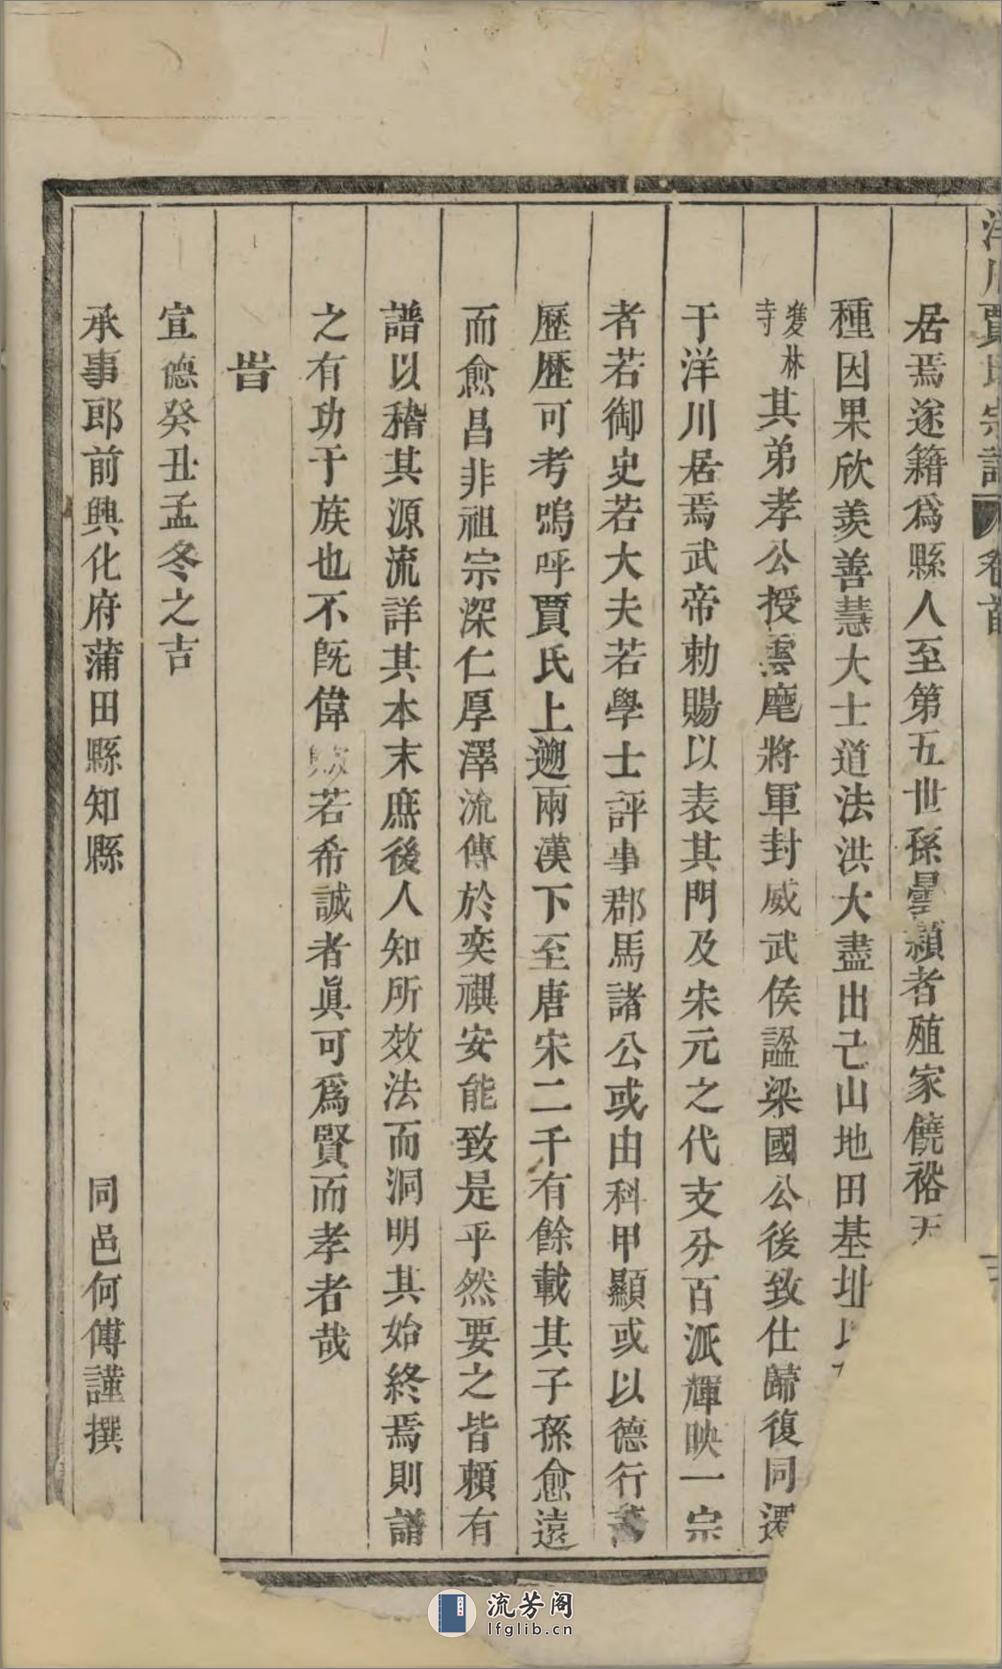 洋川賈氏宗譜 卷首
居焉遂籍爲縣人至第五世孫曇穎者殖家饒裕天
種因果欣羨善慧大士道法洪大盡出己山地田基址
雙林寺其弟孝公授雲麾將軍封威武侯謚梁國公後致仕歸復同還
于洋川居焉武帝勅賜以表其門及宋元之代支分百派輝映一宗
者若御史若大夫若學士評事郡馬諸公或由科甲顯或以德行
歷歷可考嗚呼賈氏上遡兩漢下至唐宋二千有餘載其子孫愈遠
而愈昌非祖宗深仁厚澤流傳於奕禩安能致是乎然要之皆賴有
譜以稽其源流詳其本末庶後人知所效法而洞明其始終焉則譜
之有功于族也不旣偉歟若希誠者眞可爲賢而孝者哉
旹
宣德癸丑孟冬之吉
承事郎前興化府蒲田縣知縣 同邑何傅謹撰
流芳阁
lfglib.cn